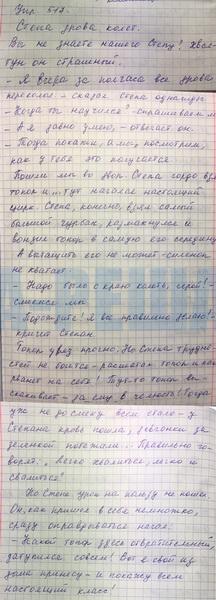 Упр. 517.
Степа дрова колет.
Вы не знаете нашего Степу? Хвас-
тун он страшный.
- Я вчера за полчаса все дрова
переколол - сказал Степа однажды.
- Когда ты научился? - спрашиваем мы
- А я давно умею, - отвечает он.
- Тогда покажи, а мы посмотрим,
как у тебя это получается.
Пошли мы во двор. Степа гордо взял
топор и... тут начался настоящий
цирк. Степа, конечно, взял самый
большой чурбак, размахнулся и
вонзил топор в самую его середину
А вытащить его не может - силенок
не хватает.
- Надо было с краю колоть, герой! -
смеемся мы.
- Подождите! Я все правильно делаю! -
кричит Степан.
Топор увяз прочно. Но Степа трудно-
стей не боится - расшатал топор и как
рванет на себя! Тут-то топор вы-
скакивает - да ему в челюсть! Тогда
уж не до смеху всем стало - у
Степана кровь пошла, девчонки за
зеленкой побежали... Правильно го-
ворят: "Легко хвалиться, легко и
свалиться!"
Но Степе урок на пользу не пошел
Он, как пришел в себя немножко,
сразу оправдываться начал:
- Какой топор здесь отвратительный,
затупился совсем! Вот я свой из
дома принесу - и покажу всем
настоящий класс!